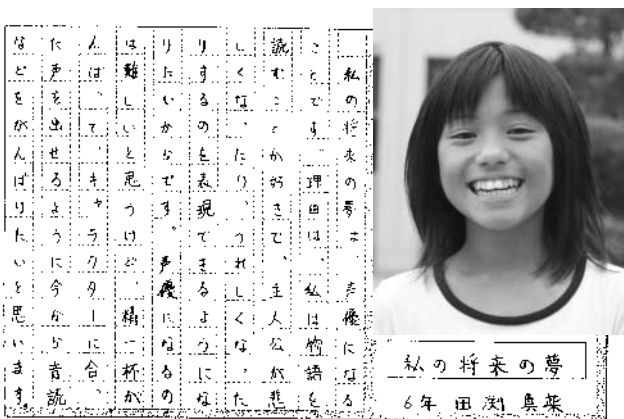 私の将来の夢は、声優になる
ことです。理由は、私は物語を
読むことが好きで、主人公が悲
しくなったり、うれしくなった
りするのを表現できるようにな
りたいからです。声優になるの
は難しいと思うけど、精一杯が
んばって、キャラクターに合っ
た声を出せるように今から音読
などをがんばりたいと思います。
私の将来の夢
6年 田渕 真菜